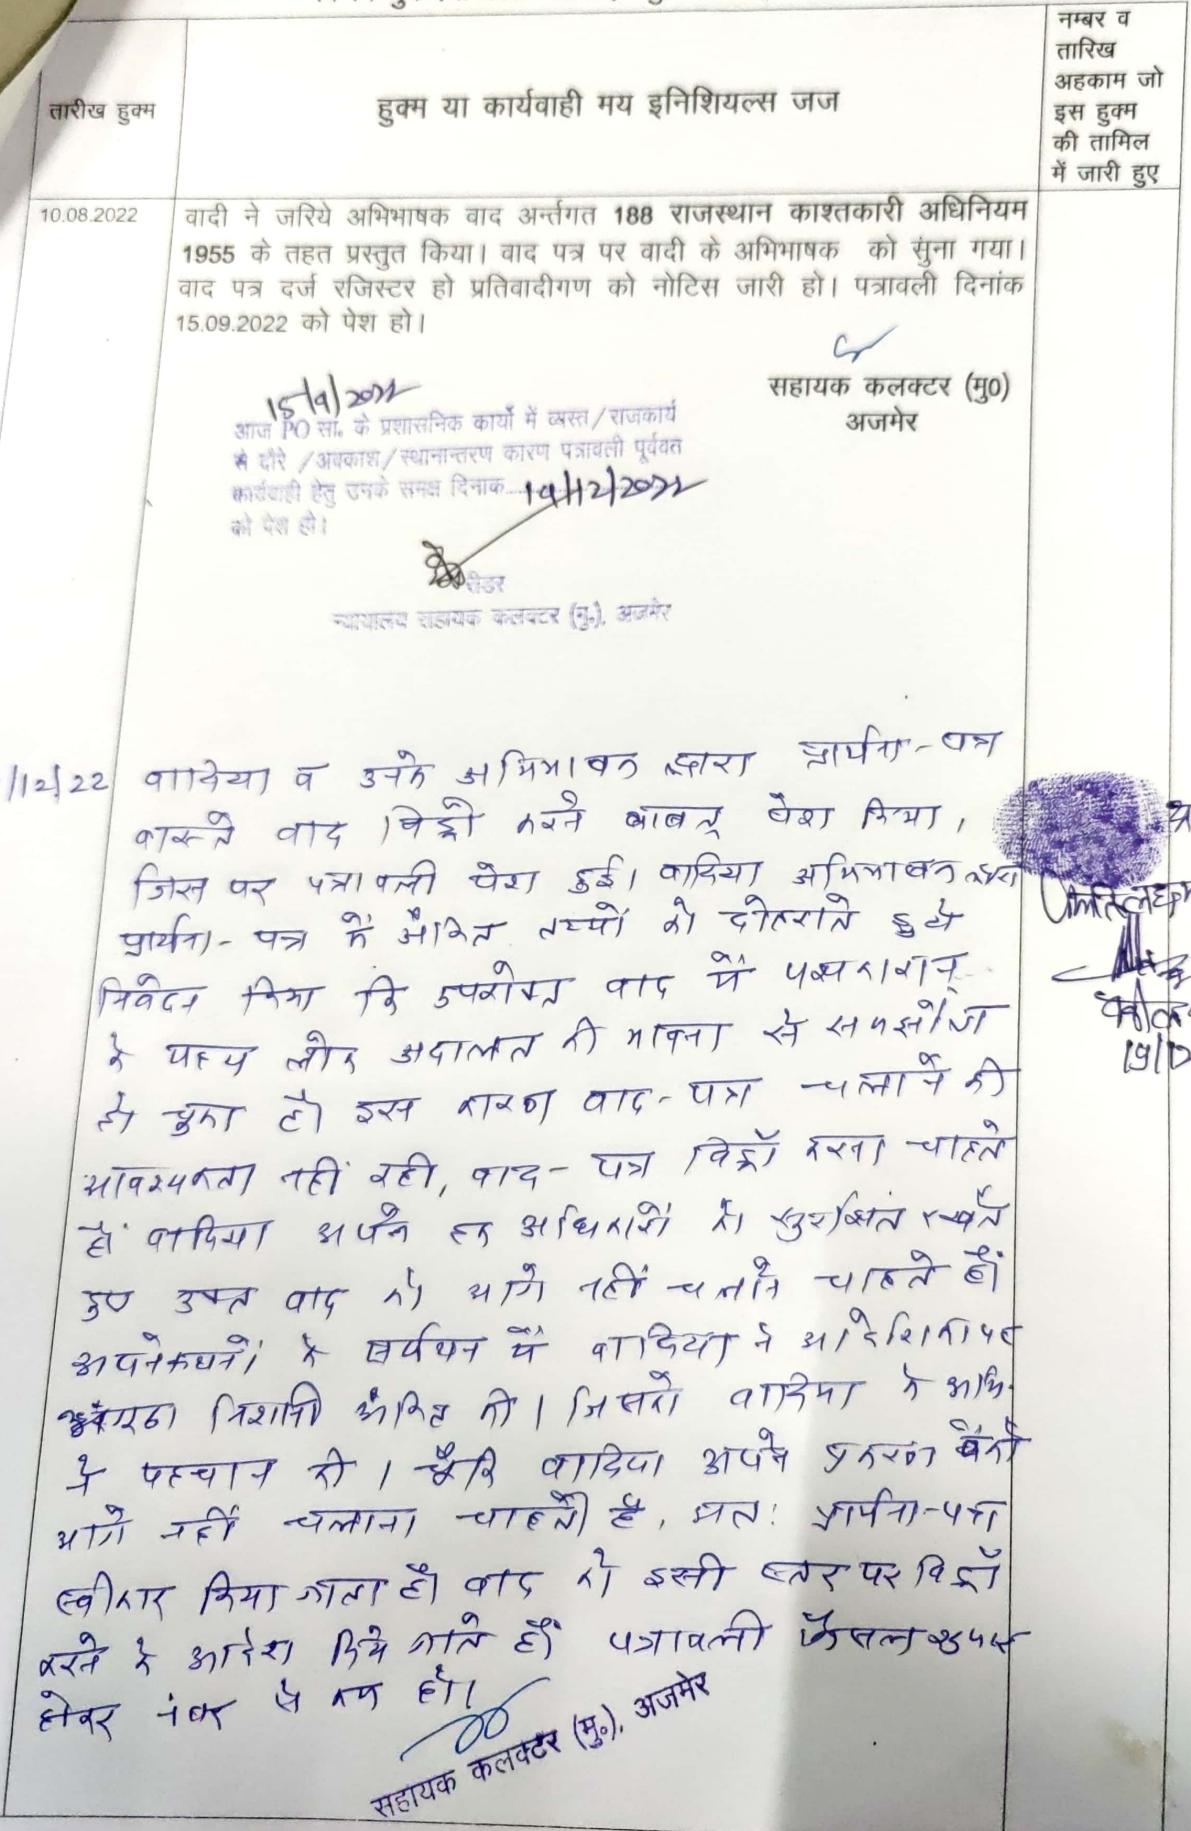 तारीख हुक्म
हुक्म या कार्यवाही मय इनिशियल्स जज
नम्बर व
तारिख
अहकाम जो
इस हुक्म
की तामिल
में जारी हुए
10.08.2022
वादी ने जरिये अभिभाषक वाद अर्न्तगत 188 राजस्थान काश्तकारी अधिनियम
1955 के तहत प्रस्तुत किया। वाद पत्र पर वादी के अभिभाषक को सुंना गया।
वाद पत्र दर्ज रजिस्टर हो प्रतिवादीगण को नोटिस जारी हो। पत्रावली दिनांक
15.09.2022 को पेश हो।
सहायक कलक्टर (मु0)
अजमेर
15/9/2022
आज PO सा. के प्रशासनिक कार्यो में व्यस्त/राजकार्य
से दौरे /अवकाश/स्थानान्तरण कारण पत्रावली पूर्ववत
कार्यवाही हेतु उनके समक्ष दिनाक....19/12/2022
को पेश हो।
रीडर
न्यायालय सहायक कलक्टर (मु.), अजमेर
/12/22 वादिया व उनके अभिभाषक द्वारा प्रार्थना-पत्र
वास्ते वाद विड्रो करने बाबत् पेश किया,
जिस पर पत्रावली पेश हुई। वादिया अभिभाषक द्वारा
प्रार्थना-पत्र में अंकित तथ्यों को दोहराते हुये
निवेदन किया कि उपरोक्त वाद में पक्षकारान्
के मध्य लोक अदालत की भावना से समझौता
हो चुका है। इस कारण वाद-पत्र चलाने की
आवश्यकता नहीं रही, वाद-पत्र विड्रॉ करना चाहते
है। वादिया अपने हक अधिकारों को सुरक्षित रखते
हुए उक्त वाद को आगे नहीं चलाने चाहते हैं।
अपने कथनों के समर्थन में वादिया ने आदेशिका पर
निशानी अंकित की। जिसकी वादिया के अभि.
ने पहचान की। चूँकि वादिया अपने प्रकरण को
आगे नहीं चलाना चाहती है, अतः प्रार्थना-पत्र
स्वीकार किया जाता है। वाद को इसी स्तर पर विड्रॉ
करने के आदेश दिये जाते हैं। पत्रावली फैसल शुमार
होकर नंबर से कम हो।
सहायक कलक्टर (मु.), अजमेर